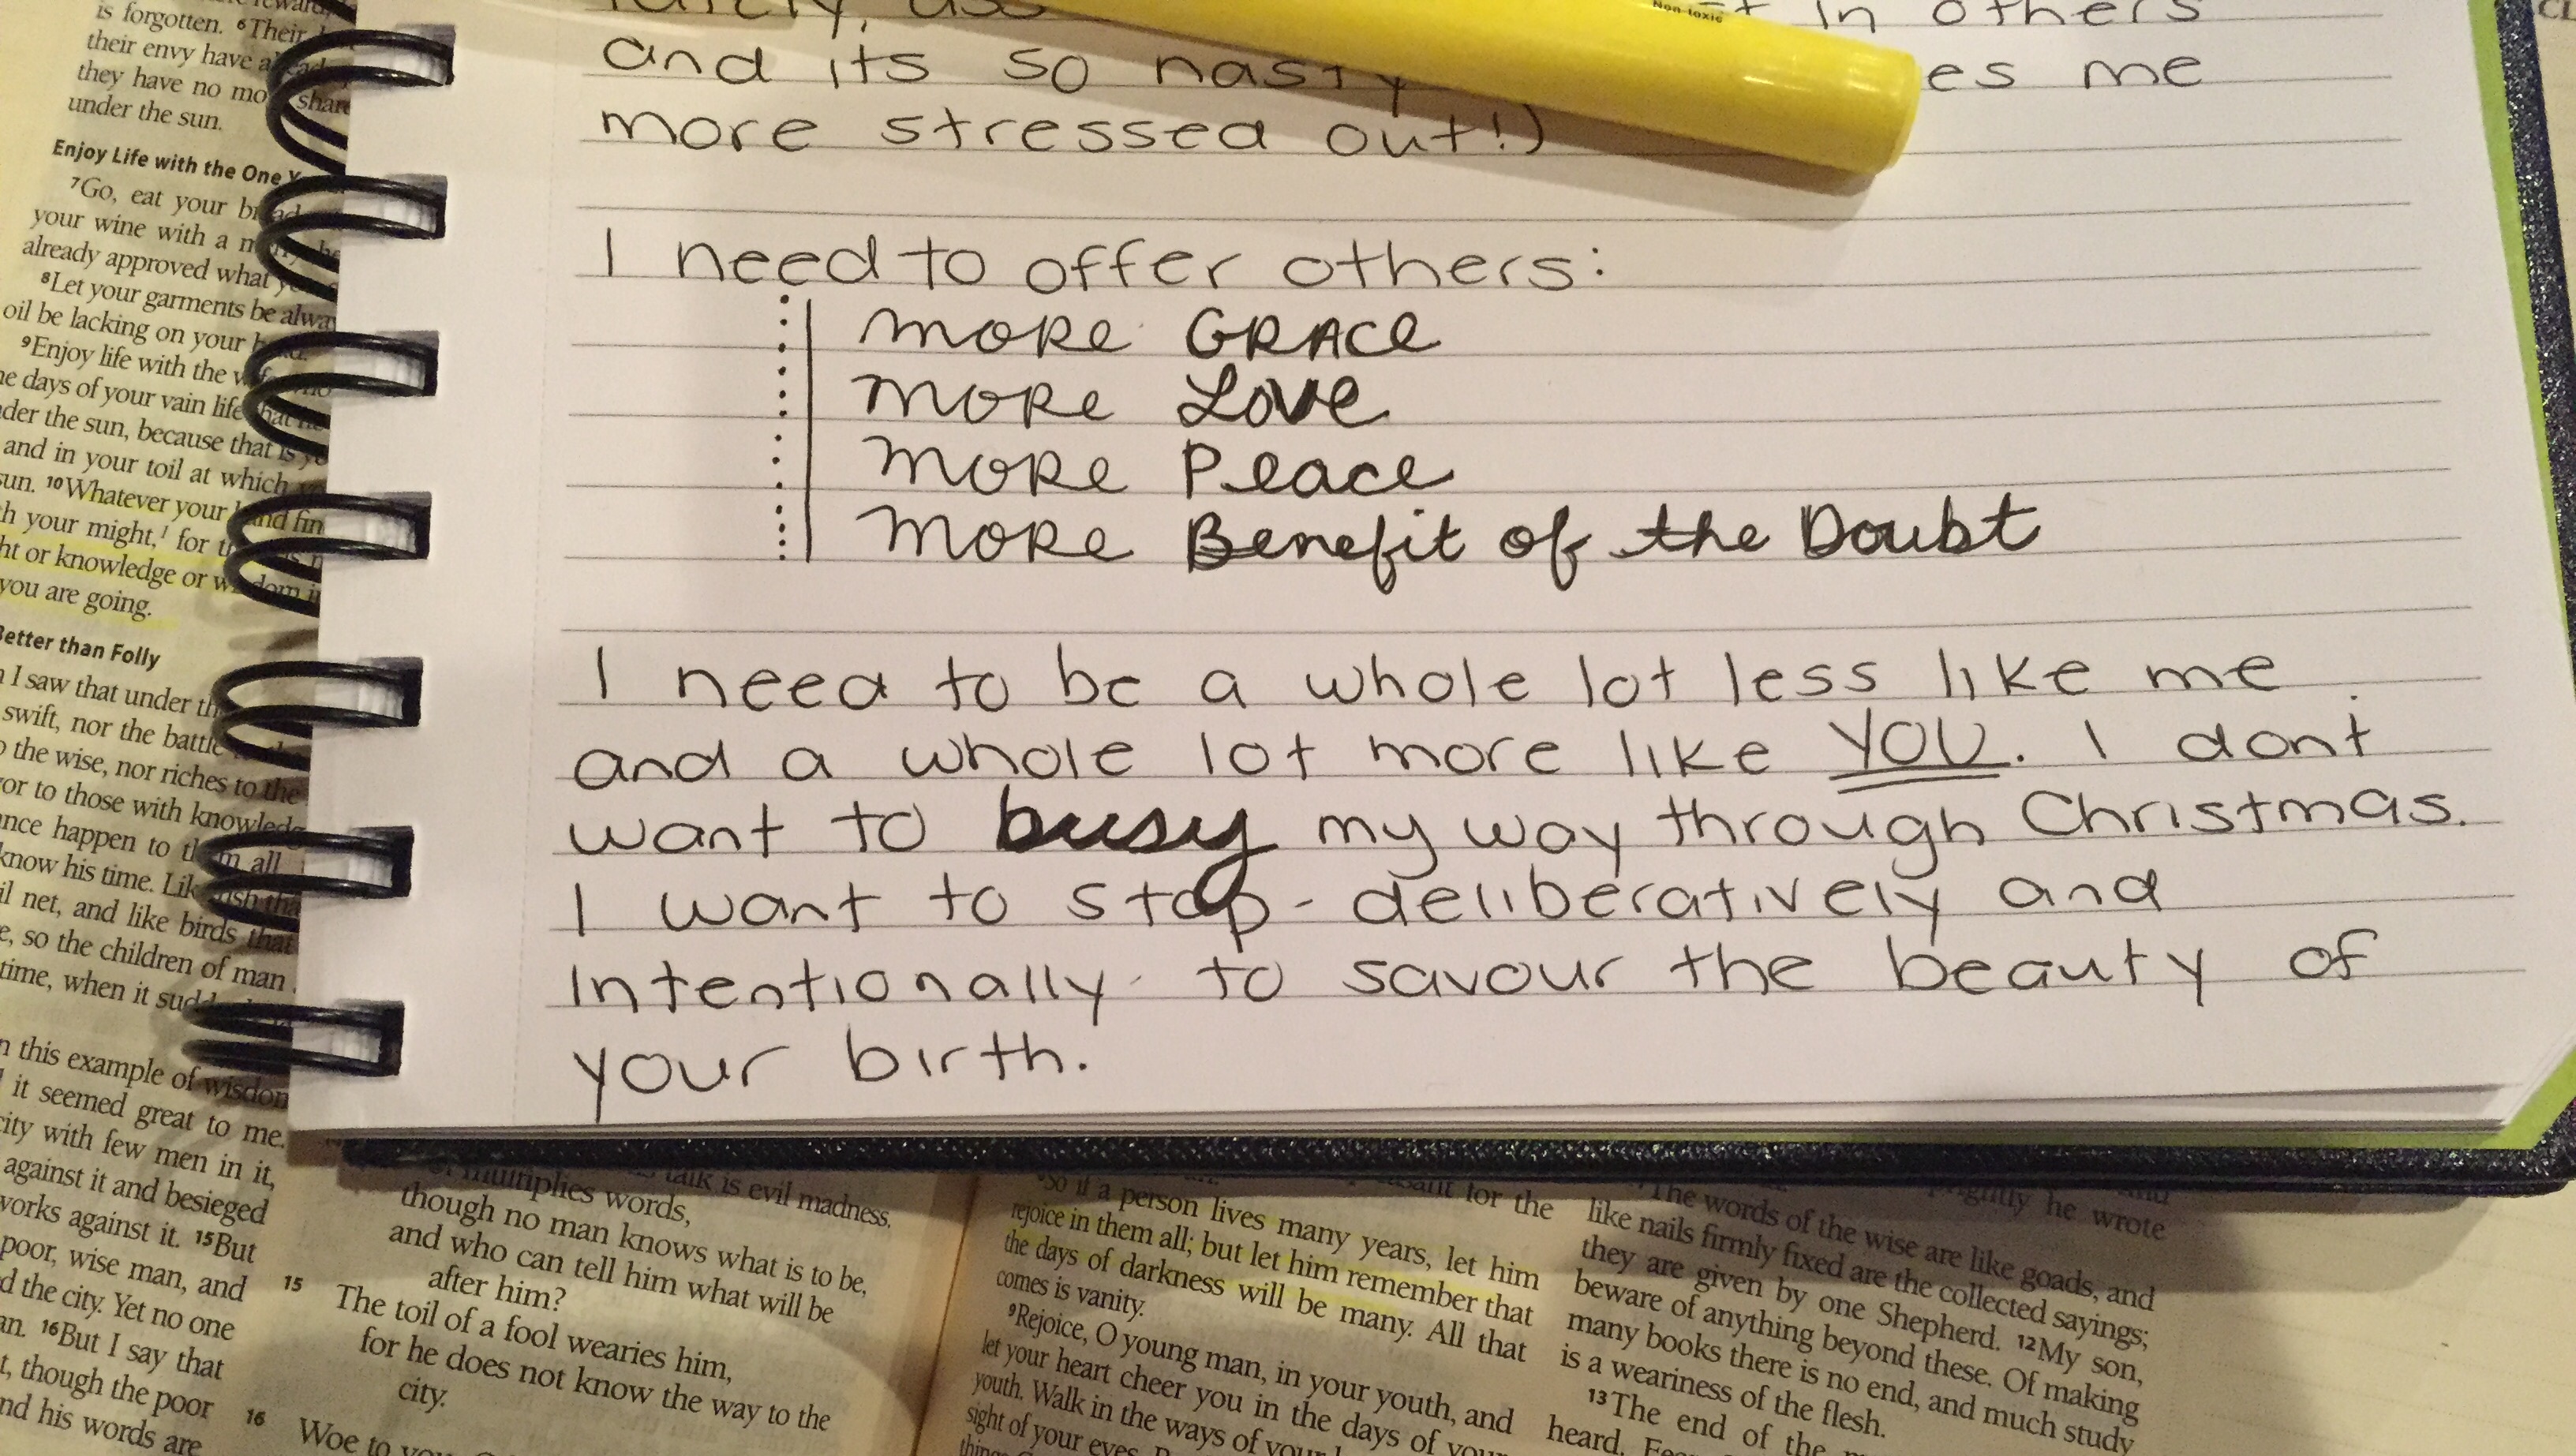 is forgotten. ⁶Their
their envy have
they have no share
under the sun.
Enjoy Life with the One
⁷Go, eat your
your wine with a
already approved what
⁸Let your garments be
oil be lacking on your
⁹Enjoy life with the
days of your vain life
the sun, because that is
and in your toil at which
sun. ¹⁰Whatever your hand
your might, for
or knowledge or
you are going.
Better than Folly
I saw that under
swift, nor the battle
the wise, nor riches to the
to those with
happen to them all.
know his time.
net, and like birds that
so the children of man
time, when it
this example of wisdom
it seemed great to me.
city with few men in it,
against it and besieged
works against it. ¹⁵But
poor, wise man, and
the city. Yet no one
¹⁶But I say that
though the poor
his words are
Non-toxic
in others
and its so nasty
me
more stressed out!)
I need to offer others:
MORE GRACE
MORE Love
MORE Peace
MORE Benefit of the Doubt
I need to be a whole lot less like me
and a whole lot more like YOU. I dont
want to busy my way through Christmas.
I want to stop - deliberatively and
intentionally - to savour the beauty of
your birth.
talk is evil madness.
multiplies words,
though no man knows what is to be,
and who can tell him what will be
after him?
15 The toil of a fool wearies him,
for he does not know the way to the
city.
16 Woe to
for the
So if a person lives many years, let him
rejoice in them all; but let him remember that
the days of darkness will be many. All that
comes is vanity.
⁹Rejoice, O young man, in your youth, and
let your heart cheer you in the days of your
youth. Walk in the ways of your
sight of your eyes.
he wrote
The words of the wise are like goads, and
like nails firmly fixed are the collected sayings;
they are given by one Shepherd. ¹²My son,
beware of anything beyond these. Of making
many books there is no end, and much study
is a weariness of the flesh.
¹³The end of the
heard.